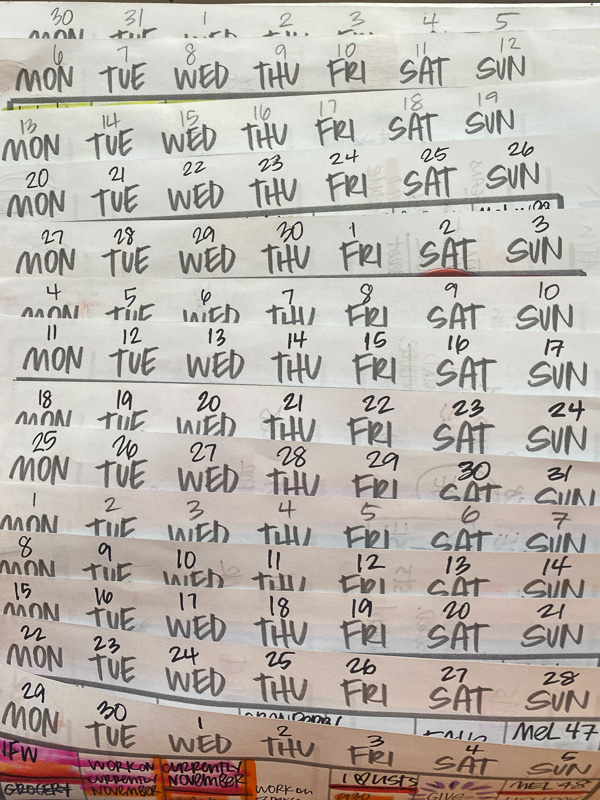 30 31 1 2 3 4 5
6 7 8 9 10 11 12
MON TUE WED THU FRI SAT SUN
13 14 15 16 17 18 19
MON TUE WED THU FRI SAT SUN
20 21 22 23 24 25 26
MON TUE WED THU FRI SAT SUN
27 28 29 30 1 2 3
MON TUE WED THU FRI SAT SUN
4 5 6 7 8 9 10
MON TUE WED THU FRI SAT SUN
11 12 13 14 15 16 17
MON TUE WED THU FRI SAT SUN
18 19 20 21 22 23 24
MON TUE WED THU FRI SAT SUN
25 26 27 28 29 30 31
MON TUE WED THU FRI SAT SUN
1 2 3 4 5 6 7
MON TUE WED THU FRI SAT SUN
8 9 10 11 12 13 14
MON TUE WED THU FRI SAT SUN
15 16 17 18 19 20 21
MON TUE WED THU FRI SAT SUN
22 23 24 25 26 27 28
MON TUE WED THU FRI SAT SUN
29 30 1 2 3 4 5
MEL 47
MON TUE WED THU FRI SAT SUN
IFW WORK ON CURRENTLY/
CURRENTLY NOVEMBER I ♥ LISTS MEL 48
GROCERY NOVEMBER WORK ON 930 GIVE